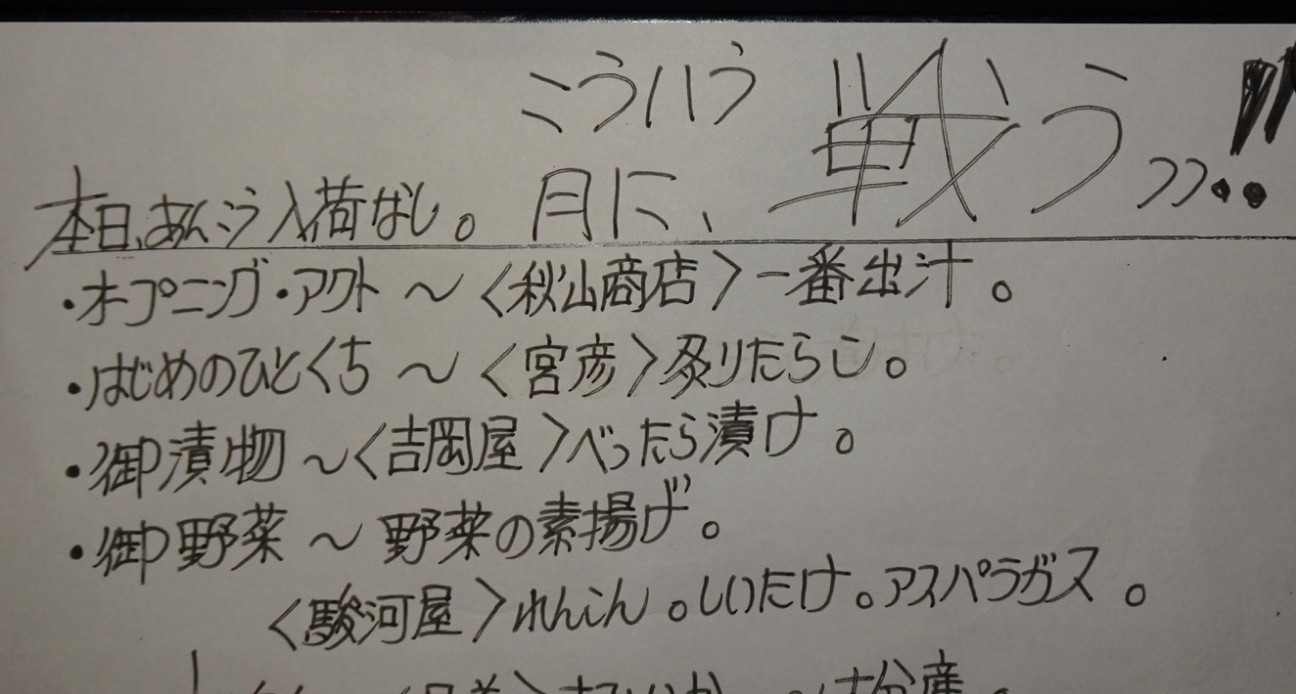 こういう
本日、あんこう入荷なし。 月に、戦うッッ‼
・オープニング・アクト 〜〈秋山商店〉一番出汁。
・はじめのひとくち 〜〈宮彦〉炙りたらこ。
・御漬物 〜〈吉岡屋〉べったら漬け。
・御野菜 〜 野菜の素揚げ。
〈駿河屋〉れんこん。しいたけ。アスパラガス。